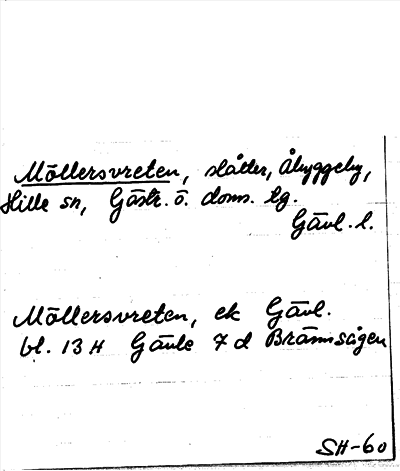 Möllersvreten, slåtter, Åbyggeby,
Hille sn, Gästr. ö. doms. lg.
Gävl. l.
Möllersvreten, ek Gävl.
bl. 13 H Gävle 7 d Brännsågen
SH-60